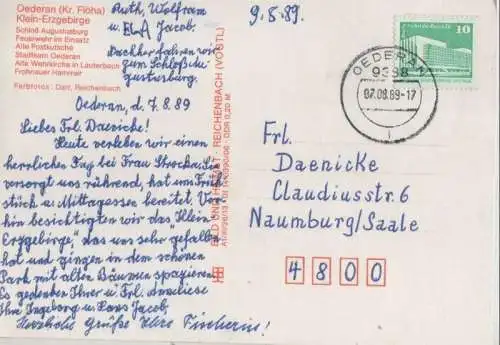 Oederan (Kr. Flöha)
Klein-Erzgebirge
Schloß Augustusburg
Feuerwehr im Einsatz
Alte Postkutsche
Stadtturm Oederan
Alte Wehrkirche in Lauterbach
Frohnauer Hammer
Farbfotos: Darr, Reichenbach
Ruth, Wolfram
u. Jacob.
Nachher fahren wir
zum Schloß Au-
gustusburg.
9.8.89.
Oederan, d. 7.8.89
Liebes Frl. Daenicke!
Heute verleben wir einen
herrlichen Tag bei Frau
versorgt uns rührend, hat uns Früh-
stück u. Mittagessen bereitet. Vor-
hin besichtigten wir das "Klein-
Erzgebirge", das uns sehr gefallen
hat und gingen in dem schönen
Park mit alten Bäumen spazieren.
Es gedenken Ihrer u. Frl. Anneliese
Ihre Ingeborg u. Hans Jacob,
Herzliche Grüße Ihre Fischerin!
BILD UND HEIMAT · REICHENBACH (VOGTL)
DDR 0,20 M
10
OEDERAN
9388
07.08.89-17
1
Frl.
Daenicke
Claudiusstr. 6
Naumburg/Saale
4800